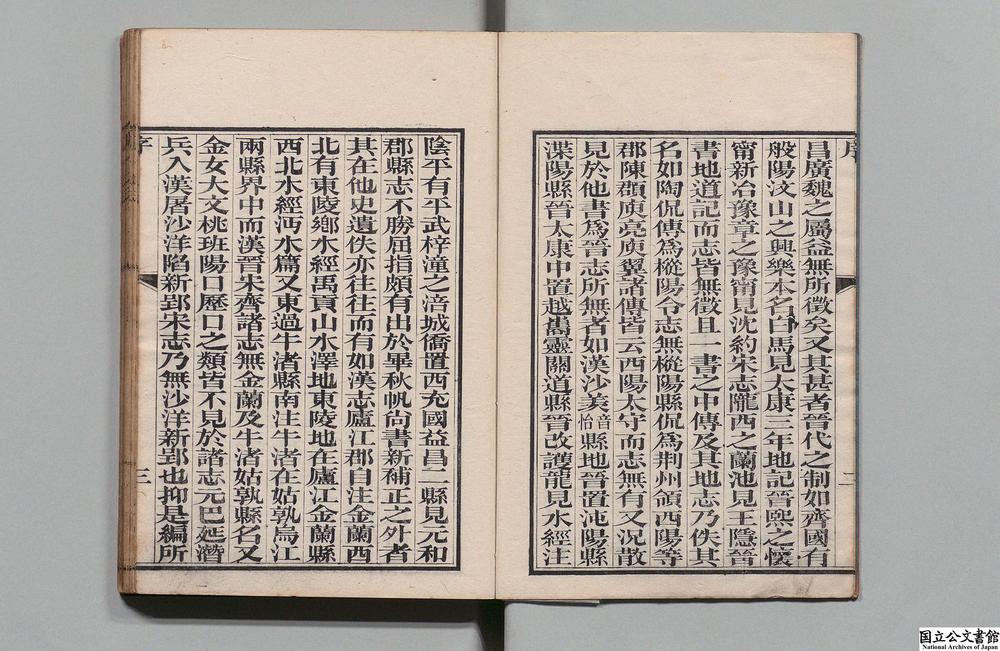 序
二
昌廣魏之屬益無所徵矣又其甚者晉代之制如齊國有
般陽汶山之興樂本名白馬見太康三年地記晉熙之懷
甯新冶豫章之豫甯見沈約宋志隴西之蘭池見王隱晉
書地道記而志皆無徵且一書之中傳及其地志乃佚其
名如陶侃傳為樅陽令志無樅陽縣侃為荆州領西陽等
郡陳頵庾亮庾翼諸傳皆云西陽太守而志無有又況散
見於他書為晉志所無者如漢沙羡音怡縣地晉置沌陽縣
溧陽縣晉太康中置越巂靈關道縣晉改護龍見水經注
陰平有平武梓潼之涪城僑置西充國益昌二縣見元和
郡縣志不勝屈指頗有出於畢秋帆尚書新補正之外者
其在他史遺佚亦往往而有如漢志廬江郡自注金蘭西
北有東陵鄉水經禹貢山水澤地東陵地在廬江金蘭縣
西北水經沔水篇又東過牛渚縣南注牛渚在姑孰烏江
兩縣界中而漢晉宋齊諸志無金蘭及牛渚姑孰縣名又
金女大文桃班陽口歷口之類皆不見於諸志元巴延潛
兵入漢屠沙洋陷新郢宋志乃無沙洋新郢也抑是編所
序
三
国立公文書館
National Archives of Japan